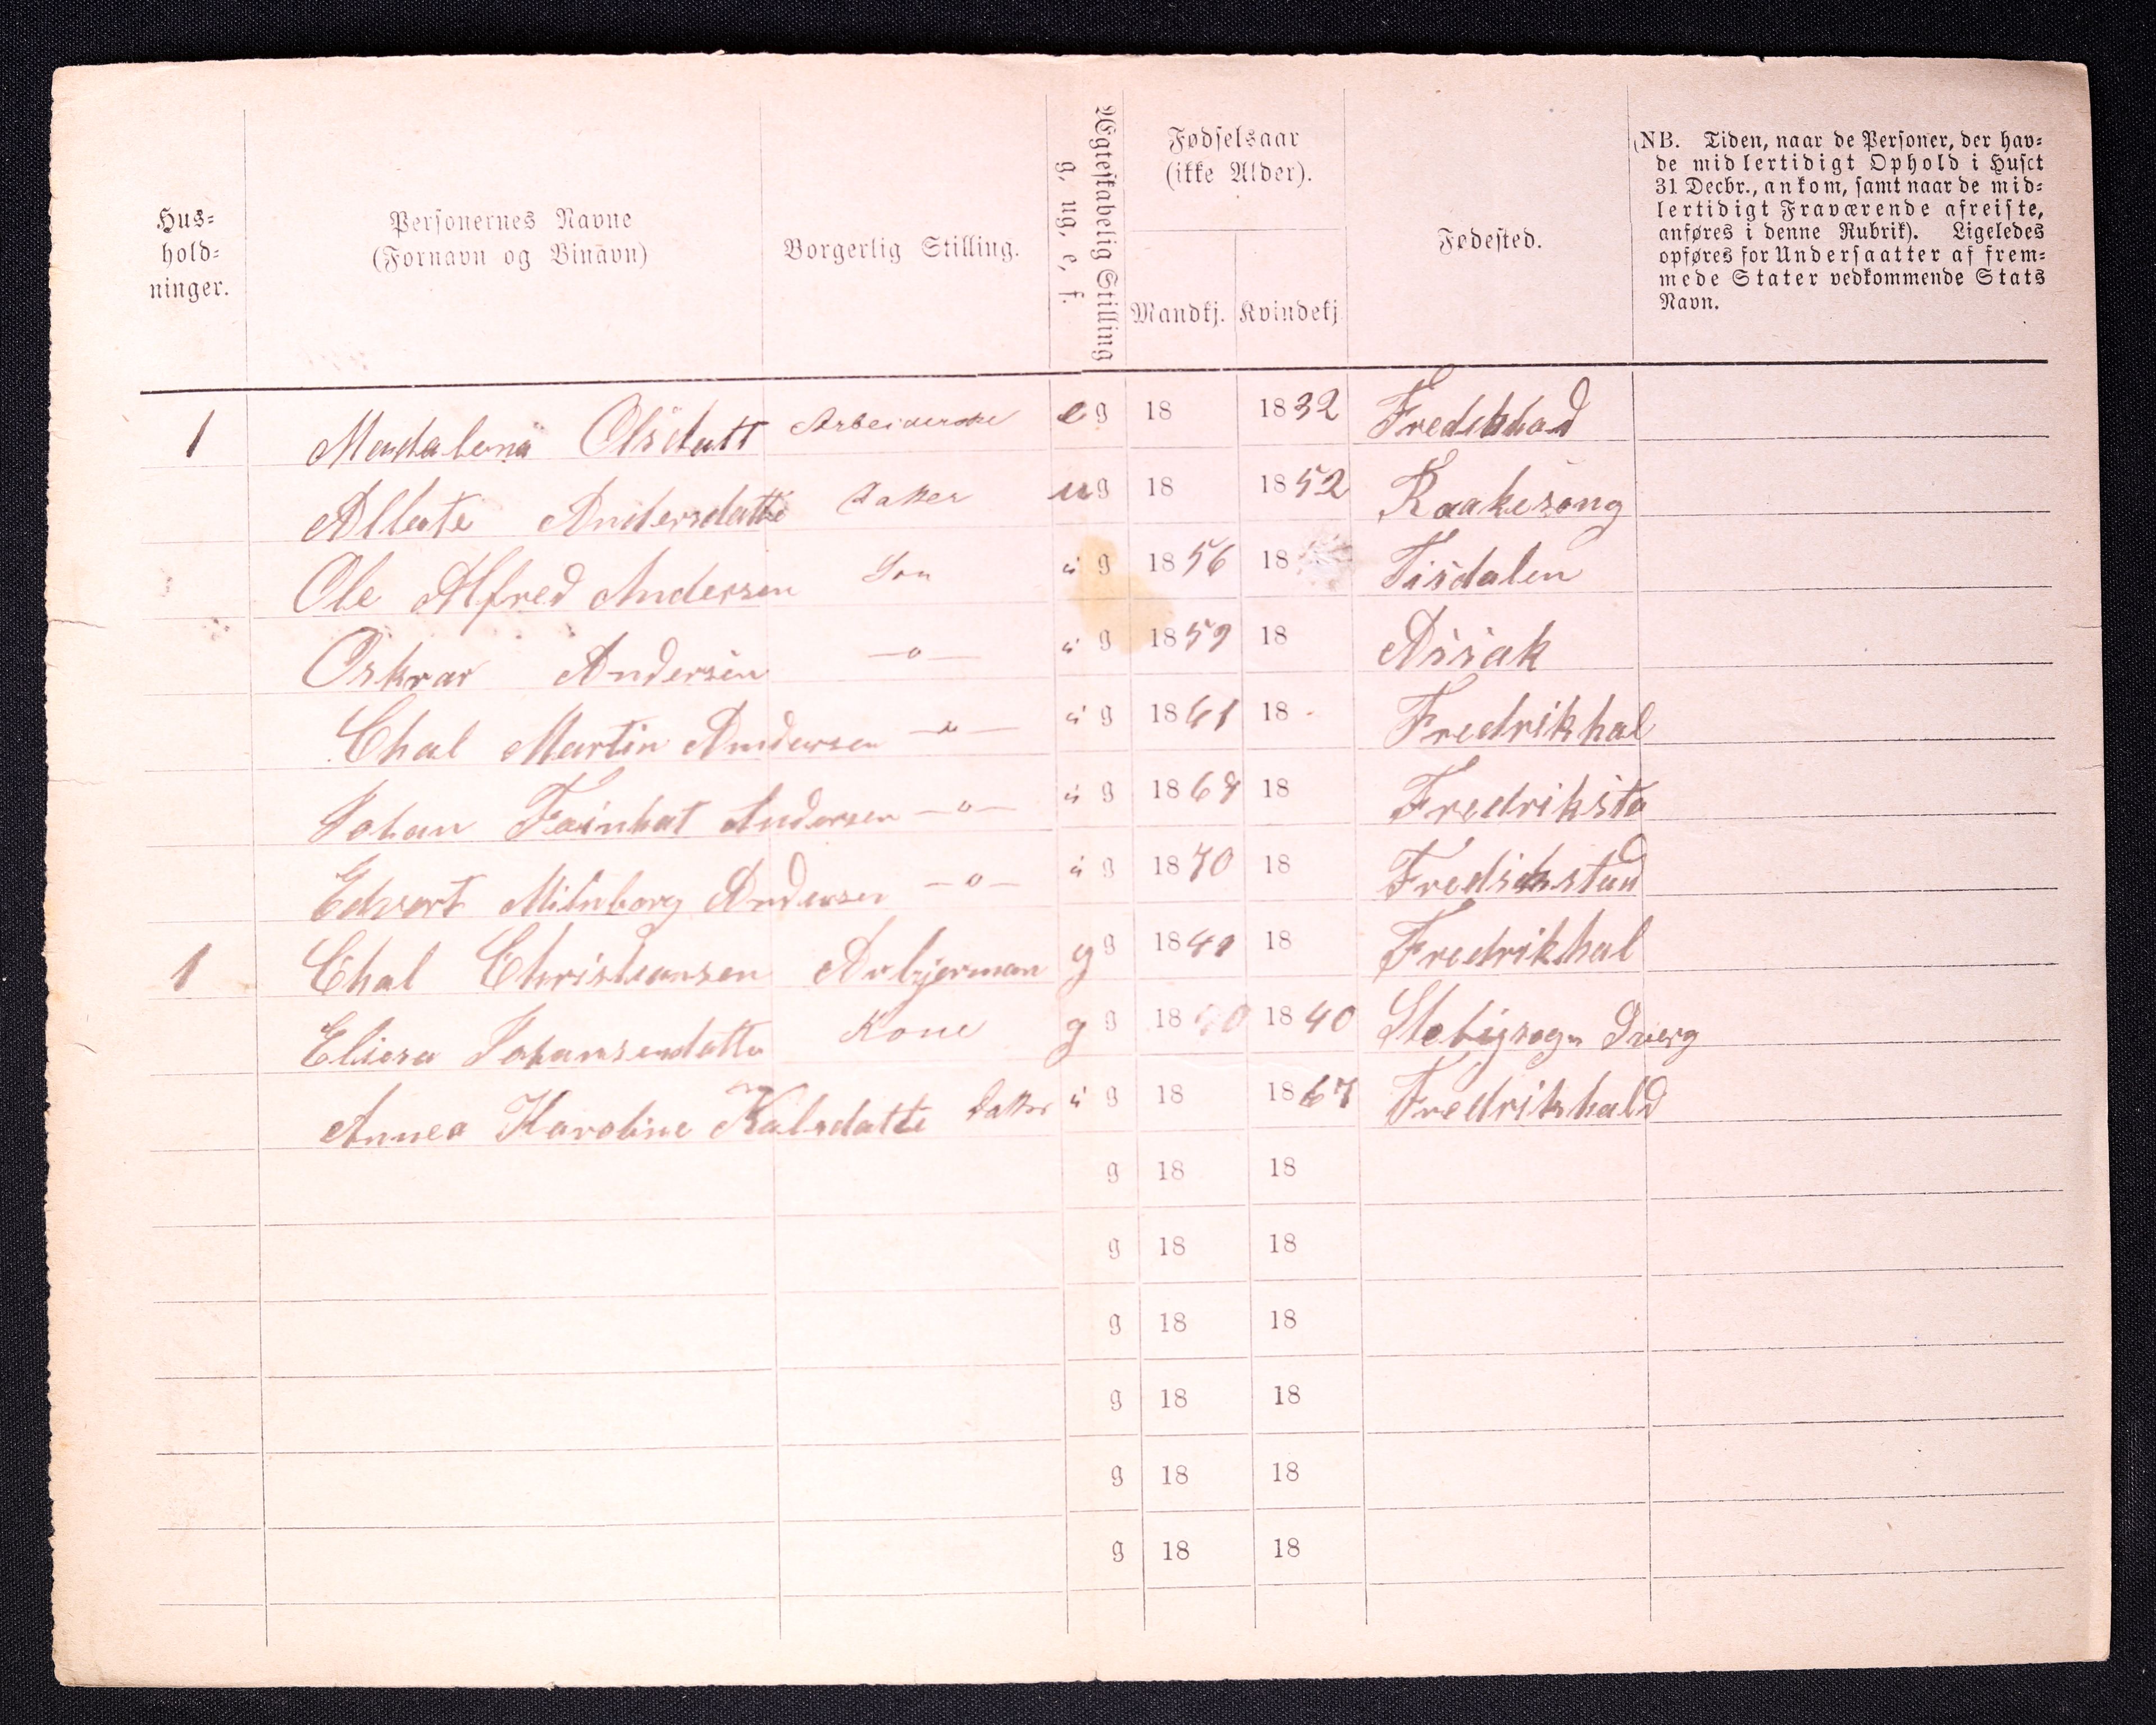 Hus-
hold-
ninger.
Personernes Navne
(Fornavn og Binavn)
Borgerlig Stilling.
Ægteskabelig Stilling
g, ug, e, f.
Fødselsaar
(ikke Alder).
Mandkj. Kvindekj
Fødested.
(NB. Tiden, naar de Personer, der hav-
de midlertidigt Ophold i Huset
31 Decbr., ankom, samt naar de mid-
lertidigt Fraværende afreiste,
anføres i denne Rubrik). Ligeledes
opføres for Undersaatter af frem-
mede Stater vedkommende Stats
Navn.
1 Madalena Olsdatt Arbeiderske e g 18 1832 Fredikhad
Allate Andersdatte Datter u g 18 1852 Raakesong
Ole Alfred Andersen Son u g 1856 18 Tisdalen
Oskrar Andersen —o— u g 1859 18 Assak
Chal Martin Andersen —o— u g 1861 18 Fredrikhal
Johan Fainhat Andersen —o— u g 1868 18 Fredriksta
Edvart Milnborg Andersen —o— u g 1870 18 Fredrikstad
1 Chal Christiansen Arbjerman g g 1841 18 Fredrikhal
Eliesa Johansendatte Kone g g 18 1840 Stebysogn Sverg
Annea Karoline Kalsdatte Datter u g 18 1867 Fredrikhald
g 18 18
g 18 18
g 18 18
g 18 18
g 18 18
g 18 18